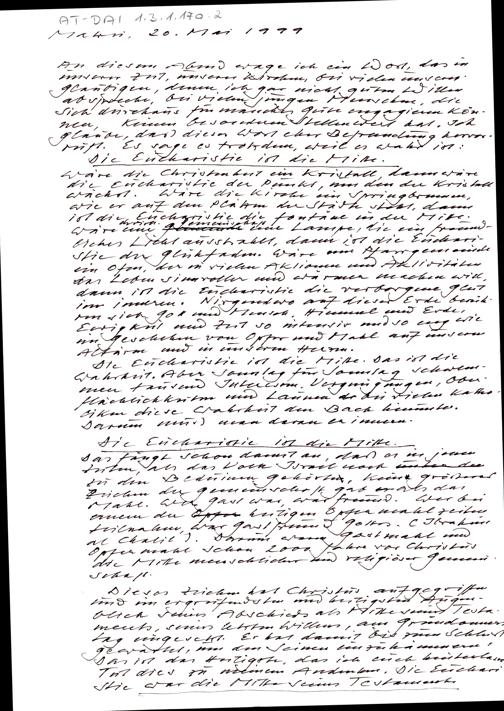 AT-DAI 1.3.1.170.2
20. Mai 1999
An diesem Abend wage ich ein Wort, das in
unserer Zeit, unseren Kirchen, bei vielen unserer
gläubigen, denen ich gar nicht guten Willen
abspreche, bei vielen jungen Menschen, die
sich durchaus für manches Gute engagieren kön-
nen, keinen besonderen Stellenwert hat. Ich
glaube, dass dieses Wort eher Befremdung hervor-
ruft. Ich sage es trotzdem, weil es wahr ist:
Die Eucharistie ist die Mitte.
Wäre die Christenheit ein Kristall, dann wäre
die Eucharistie der Punkt, um den der Kristall
wächst. Wäre die Kirche ein Springbrunnen,
wie er auf den Plätzen der Städte steht, dann
ist die Eucharistie die Fontäne in der Mitte.
Wäre eine Lampe, die ein freund-
liches Licht ausstrahlt, dann ist die Euchari-
stie der Glühfaden. Wäre eine Pfarrgemeinde
ein Ofen, der in vielen Aktionen und Aktivitäten
das Leben sinnvoller und wärmer machen will,
dann ist die Eucharistie die verborgene Glut
im Inneren. Nirgendwo auf dieser Erde berüh-
ren sich Gott und Mensch, Himmel und Erde,
Ewigkeit und Zeit so intensiv und so eng wie
im Geschehen von Opfer und Mahl auf unseren
Altären und in unserem Herzen.
Die Eucharistie ist die Mitte. Das ist die
Wahrheit. Aber Sonntag für Sonntag schwem-
men tausend Interessen, Vergnügungen, Ober-
flächlichkeiten und Launen bei vielen Katho-
liken diese Wahrheit den Bach hinunter.
Darum muss man daran erinnern.
Die Eucharistie ist die Mitte.
Das fängt schon damit an, dass es in jenen
Zeiten, als das Volk Israel noch
zu den Beduinen gehörte, kein größeres
Zeichen der Gemeinschaft gab als das
Mahl. Der Gast war Freund. Wer bei
einem der heiligen Opfermahlzeiten
teilnahm, war Gastfreund Gottes. (Ibrahim
al Chalil). Darum waren Gastmahl und
Opfermahl schon 2000 Jahre vor Christus
die Mitte menschlicher und religiöser Gemein-
schaft.
Dieses Zeichen hat Christus aufgegriffen
und im ergreifendsten und heiligsten Augen-
blick seines Abschieds als Mitte seines Testa-
ments, seines letzten Willens, am Gründonners-
tag eingesetzt. Er hat damit bis zum Schluss
gewartet, um den Seinen einzuhämmern:
Das ist das Heiligste, das ich euch hinterlasse.
Tut dies zu meinem Andenken. Die Euchari-
stie war die Mitte seines Testaments.